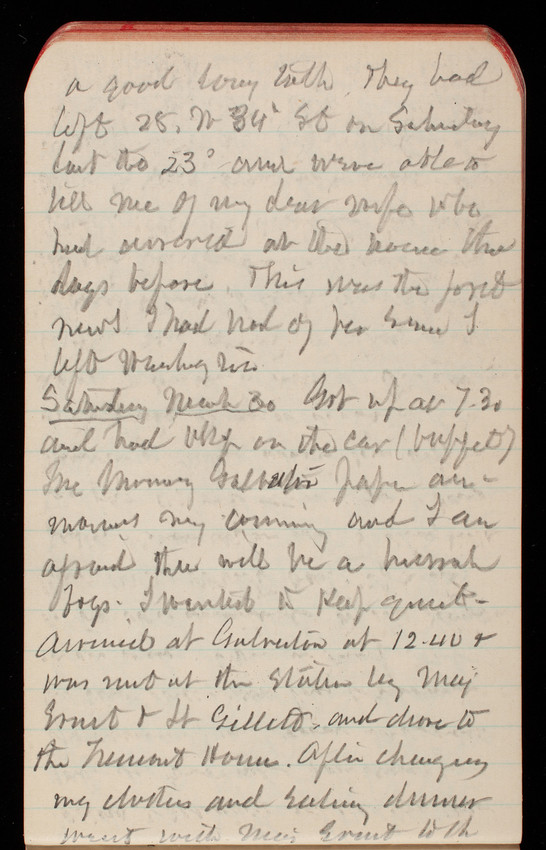 a good long talk. They had
left 28. W 34' St on Saturday
last the 23° and were able to
tell me of my dear wife who
had arrived at the house three
days before. This was the first
news I had had of her since I
left Washington
Saturday March 30 Got up at 7.30
and had bkf on the car (buffet)
The Morning Galveston paper an-
nounces my coming and I am
afraid there will be a hurrah
boys. I wanted to keep quiet -
Arrived at Galveston at 12.40 &
was met at the station by Maj
Ernst & Lt Gillette. and drove to
the Tremont House. After changing
my clothes and eating dinner
went with Maj Ernst to th